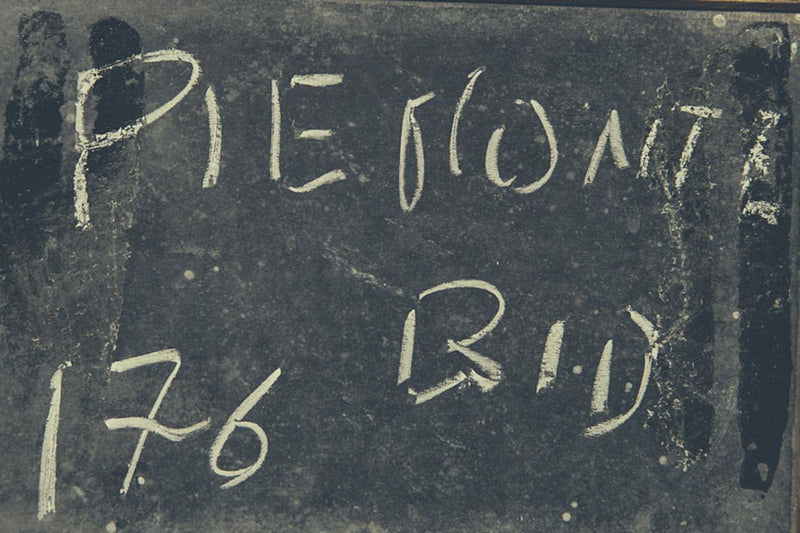 PIEMONTE
BID
176